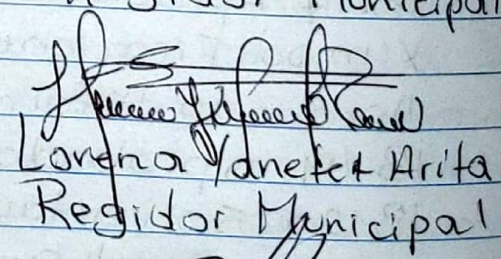 Regidor Municipal
Lorena Yanefet Arita
Regidor Municipal